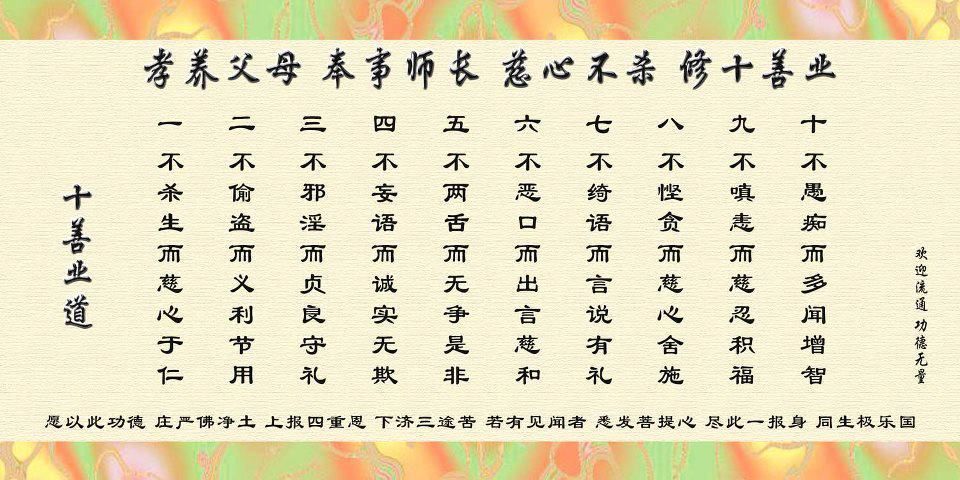 孝养父母 奉事师长 慈心不杀 修十善业
十善业道
一不杀生而慈心于仁
二不偷盗而义利节用
三不邪淫而贞良守礼
四不妄语而诚实无欺
五不两舌而无争是非
六不恶口而出言慈和
七不绮语而言说有礼
八不悭贪而慈心舍施
九不嗔恚而慈忍积福
十不愚痴而多闻增智
欢迎流通 功德无量
愿以此功德 庄严佛净土 上报四重恩 下济三途苦 若有见闻者 悉发菩提心 尽此一报身 同生极乐国